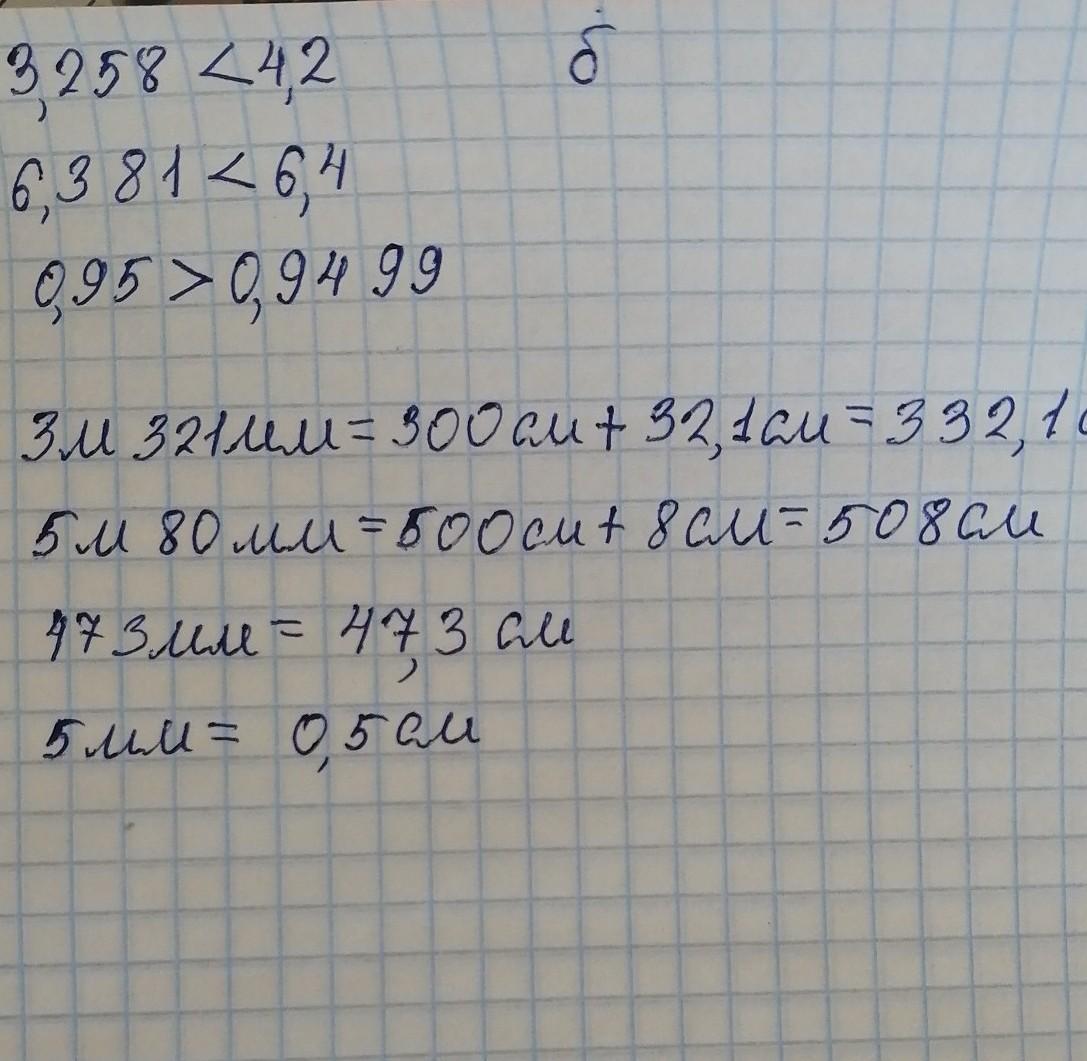 3,258 < 4,2 б
6,381 < 6,4
0,95 > 0,9499
3м 321мм = 300см + 32,1см = 332,1с
5м 80мм = 500см + 8см = 508см
473мм = 47,3 см
5мм = 0,5см